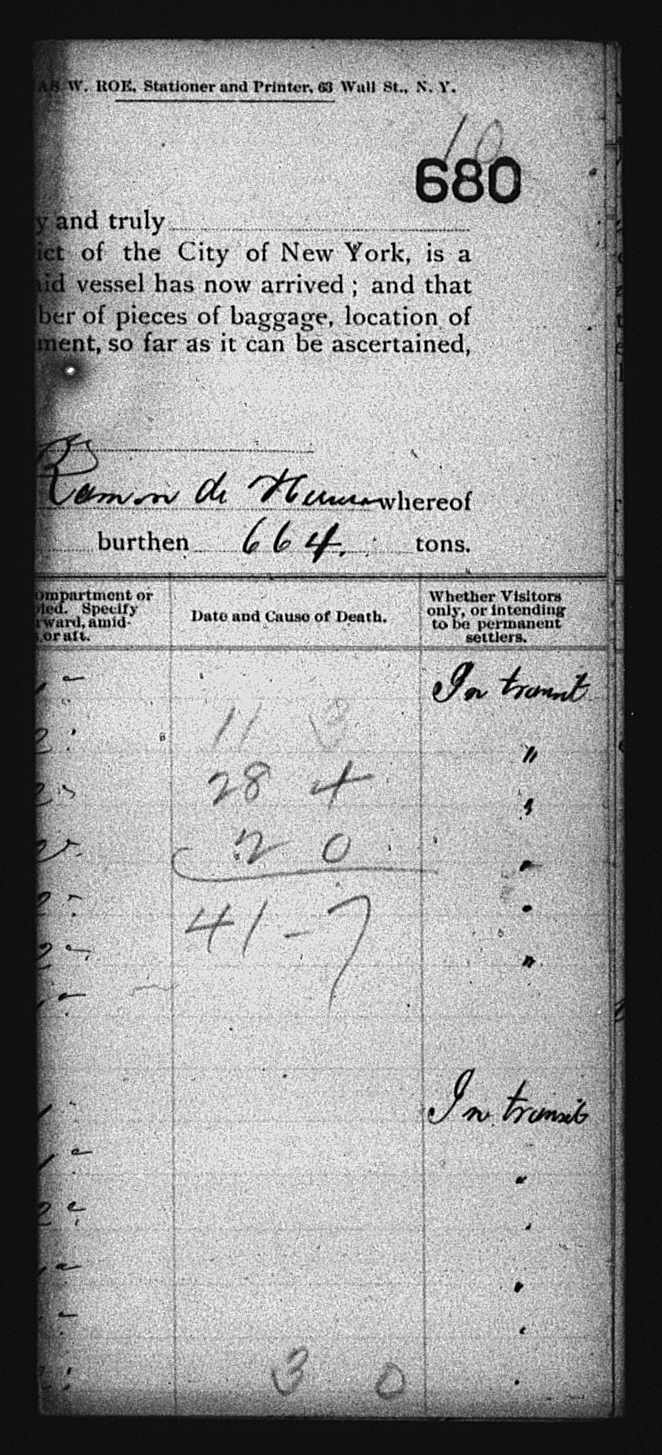 W. ROE, Stationer and Printer, 63 Wall St., N. Y.
10
680
y and truly
ict of the City of New York, is a
id vessel has now arrived ; and that
ber of pieces of baggage, location of
ment, so far as it can be ascertained,
Ramon de whereof
burthen 664. tons.
ompartment or
pied. Specify
rward, amid-
or aft.
Date and Cause of Death.
Whether Visitors
only, or intending
to be permanent
settlers.
In transit
11 3
2 "
28 4
2 0
41-7
In transit
"
3 0